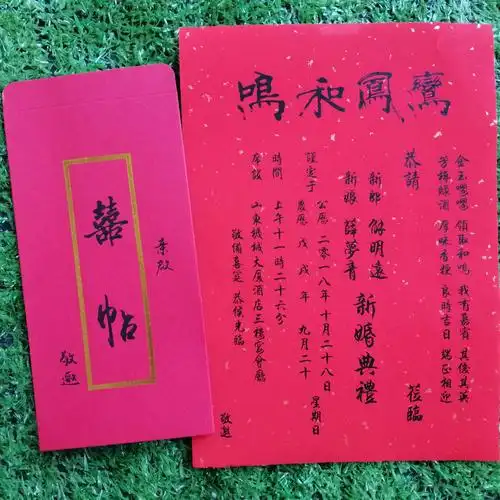 鸞鳳和鳴
金玉嚶嚶 領取和鳴 我有嘉賓 其儀其英
芳樽綠酒 厚味香粳 良時吉日 端正相迎
恭請
新郎 解明遠
新娘 薛夢青
新婚典禮
莅臨
謹定于
公歷 二〇一八年十月二十八日 星期日
農歷 戊戌年 九月二十
時間 上午十一時二十六分
席設 山東機械大廈酒店三樓宴會廳
敬備喜筵 恭候光臨
敬邀
亲啟
囍帖
敬邀